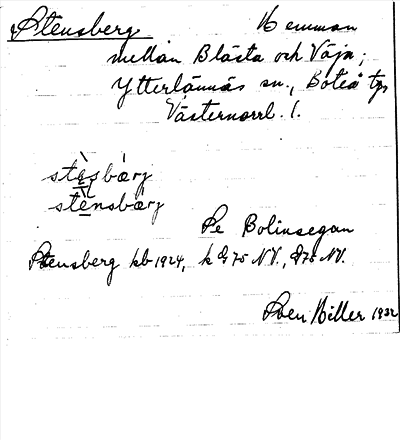 Stensberg Hemman
mellan Blästa och Väja,
Ytterlännäs sn., Boteå tgs
Västernorrl. l.
stè̱sbærg
stè̱nsbærg
Pe Bolinsegan
Stensberg kb 1924, k G 75 NV., 75 NV.
Sven Hiller 1932